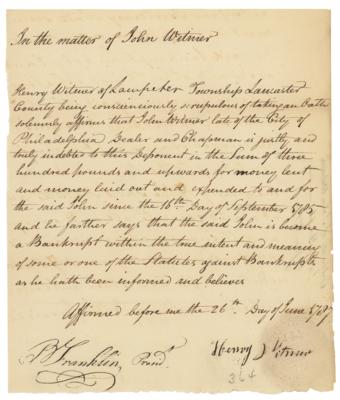 In the matter of John Witmer
Henry Witmer of Lampeter Township Lancaster
County being conscienciously scrupulous of taking an Oath
solemnly affirms that John Witmer late of the City of
Philadelphia Dealer and Chapman is justly and
truly indebted to this Deponent in the Sum of three
hundred pounds and upwards for money lent
and money laid out and expended to and for
the said John since the 15th Day of September 1785
and he farther says that the said John is become
a Bankrupt within the true intent and meaning
of some or one of the Statutes against Bankrupts
as he hath been informed and believes
Affirmed before me the 26th Day of June 1787
B Franklin, Presdt.
Henry Witmer
364